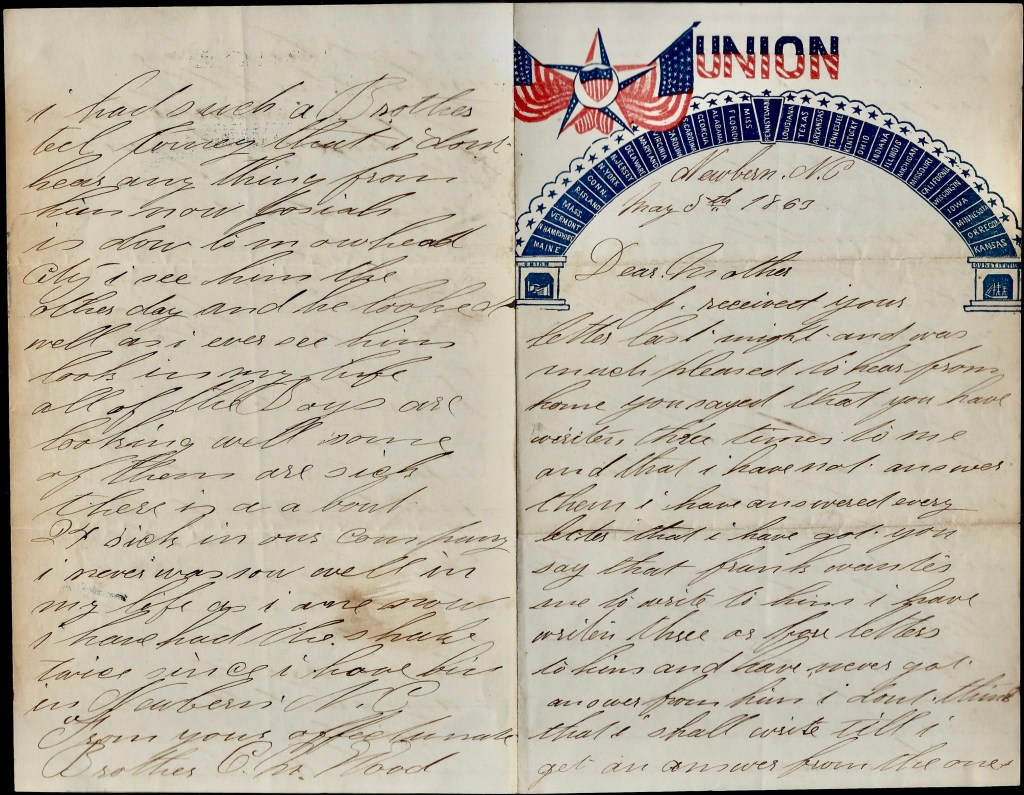 UNION
MAINE
N HAMPSHIRE
VERMONT
MASS.
R. ISLAND
CONN.
N. YORK
N. JERSEY
DELAWARE
MARYLAND
VIRGINIA
N. CAROLINA
S. CAROLINA
GEORGIA
ALABAMA
FLORIDA
MISS
PENNSYLVANIA
LOUISIANA
TEXAS
ARKANSAS
TENNESSEE
KENTUCKY
OHIO
INDIANA
ILLINOIS
MICHIGAN
MISSOURI
CALIFORNIA
WISCONSIN
IOWA
MINNESOTA
OREGON
KANSAS
UNION
CONSTITUTION
Newbern. N.C
May 5th 1863
Dear Mother
I received your
letter last night and was
much pleased to hear from
home you sayed that you have
writen three times to me
and that i have not answer
them i have answered every
letter that i have got you
say that frank wantes
me to write to him i have
writen three or fore letters
to him and have never got
answer from him i dont think
that i shall write till i
get an answer from the ones
i had such a Brother
tel that i dont
hear any thing from
him now
is down to mowhead
city i see him the
other day and he looked
well as i ever see him
look in my life
all of the Boys are
looking well some
of them are sick
there is a a bout
24 sick in our company
i never was sow well in
my life as i ame now
i have had the shake
twice since i have bin
in Newbern N.C
From your affectunate
Brother C. W. Wood